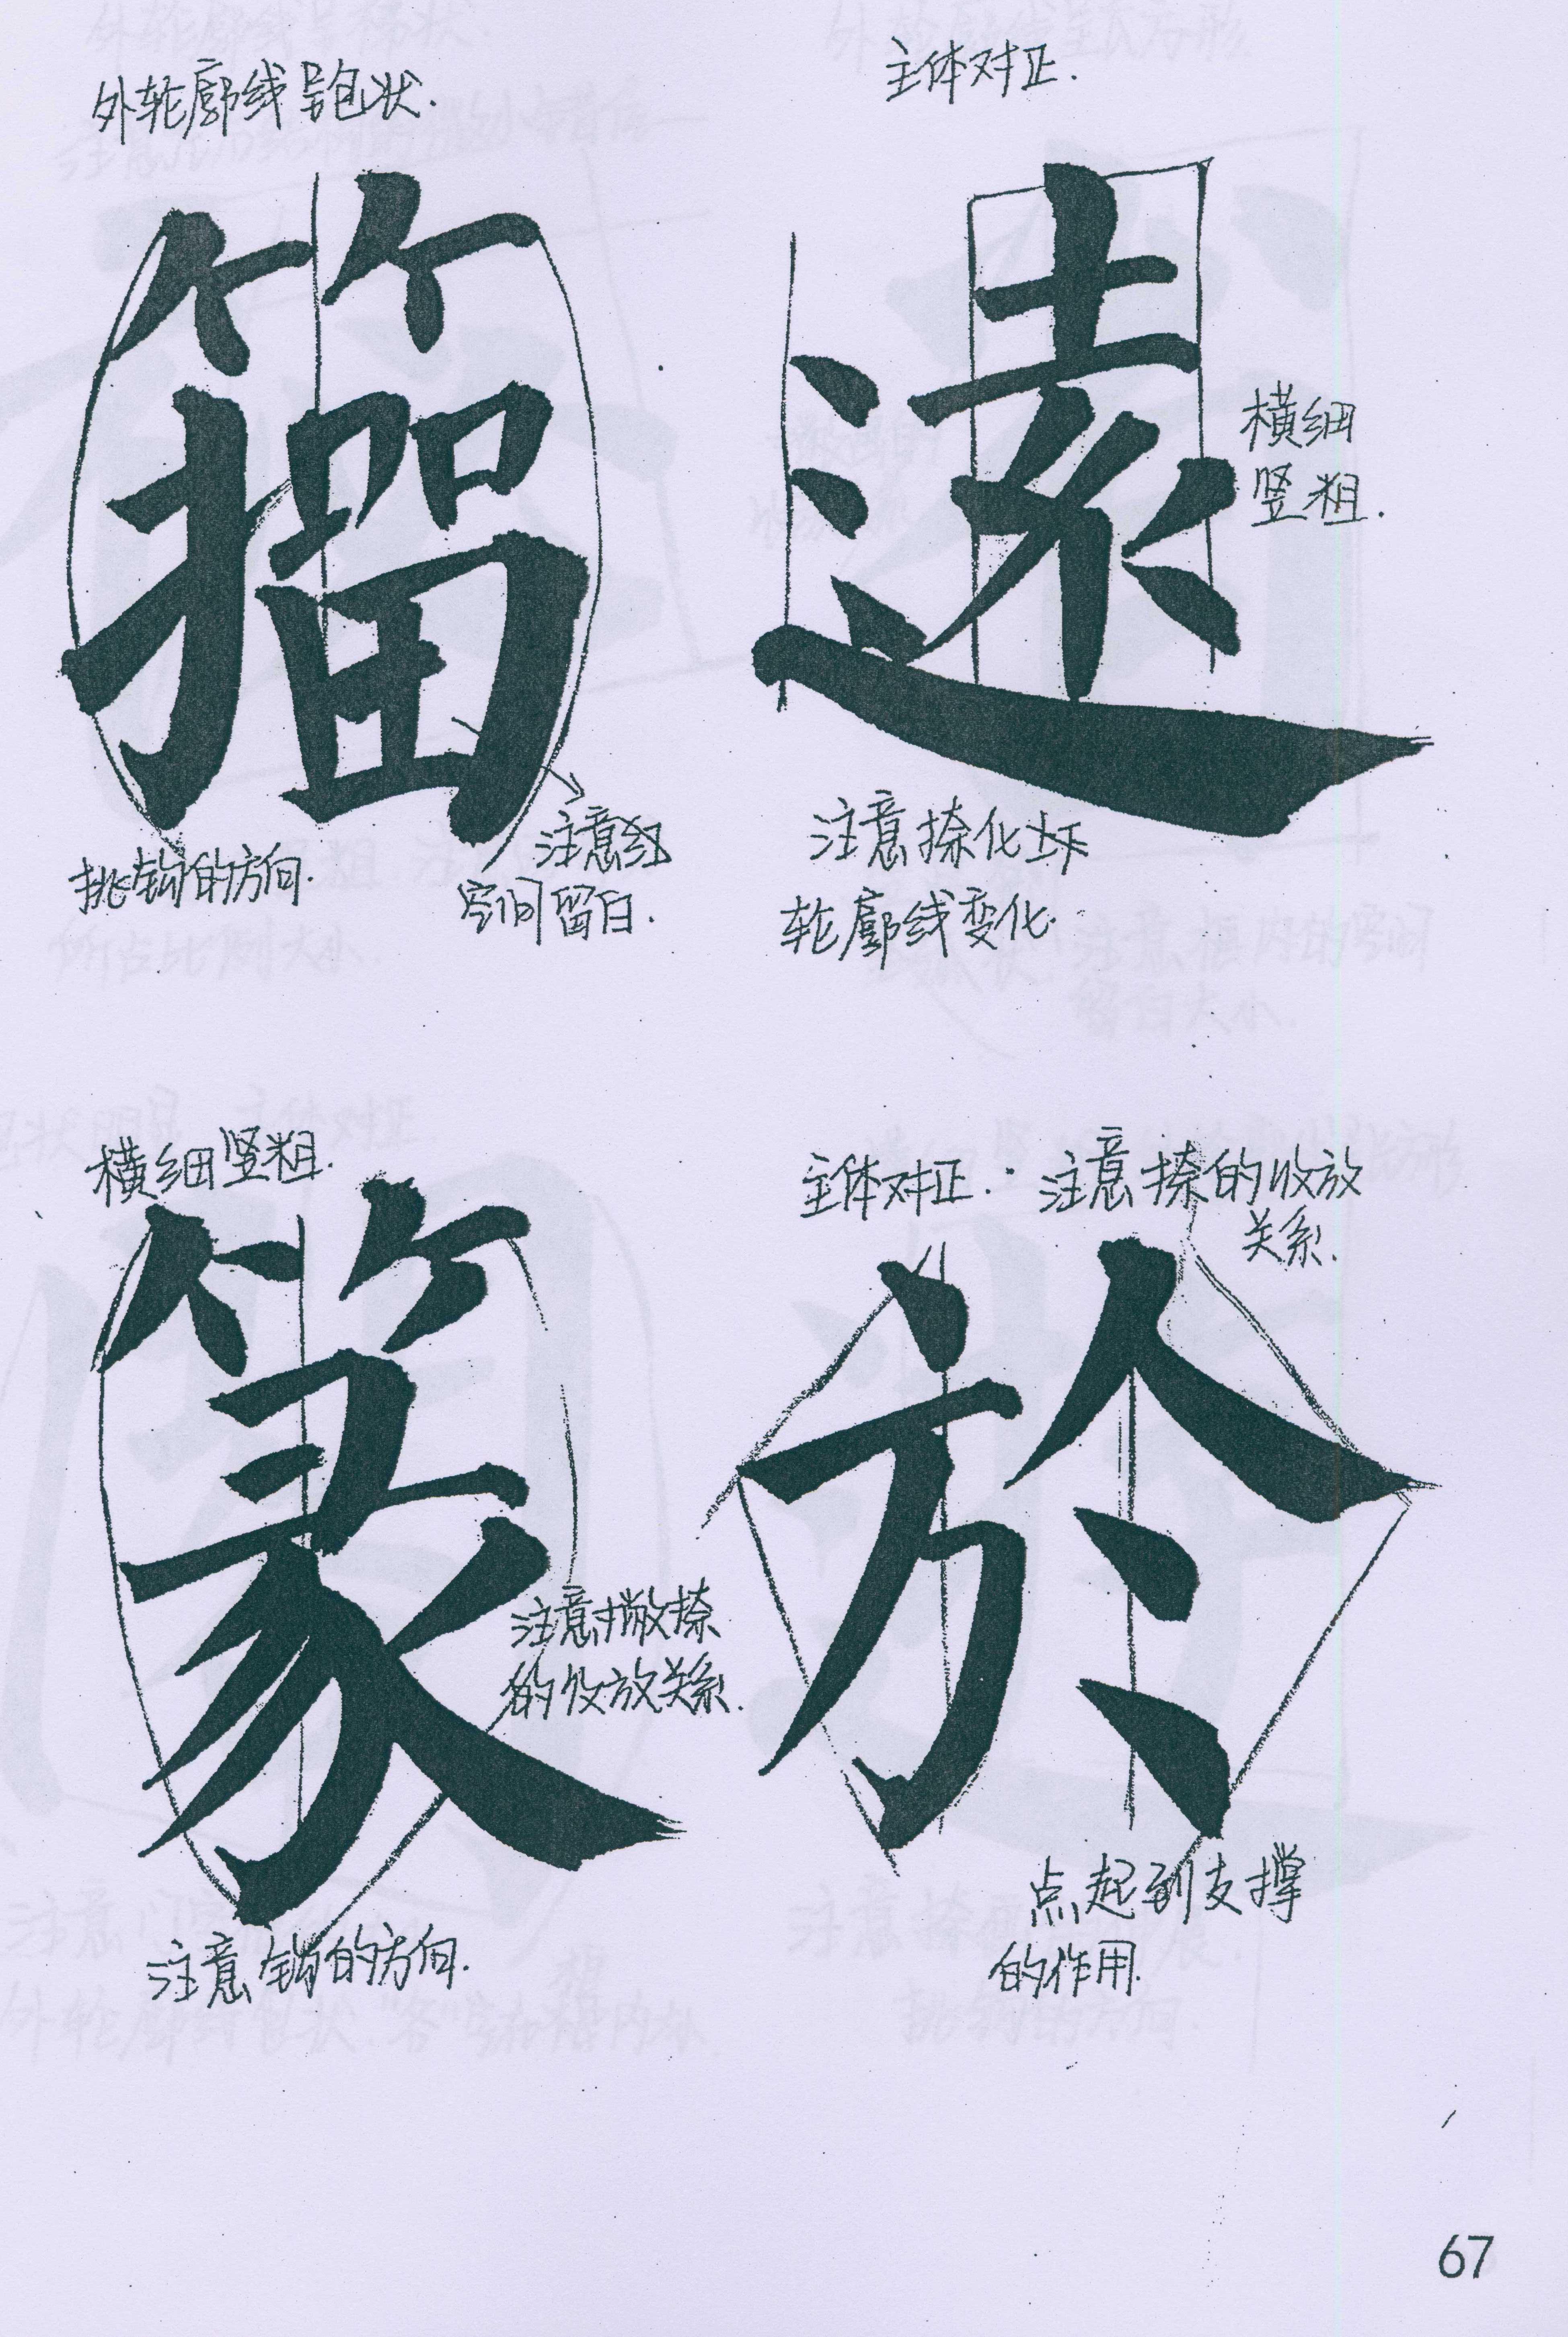 外轮廓线呈包状.
籀
挑钩的方向.
注意
空间留白.
主体对正.
遠
横细
竖粗.
注意捺化上下
轮廓线变化.
横细竖粗.
篆
注意撇捺
的收放关系.
注意钩的方向.
主体对正. 注意捺的收放
关系.
於
点起到支撑
的作用.
67